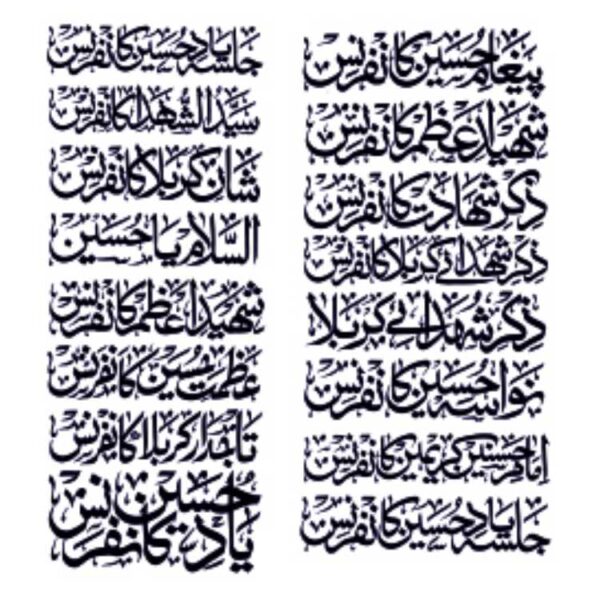 پیغام حسین کانفرنس
شہید عظم کانفرنس
ذکر شہادت کانفرنس
ذکر شہدائے کربلا کانفرنس
ذکر شہدائے کربلا
نواسہ حسین کانفرنس
امام حسنین کریمین کانفرنس
جلسہ یاد حسین کانفرنس
جلسہ یاد حسین کانفرنس
سید الشهدا کانفرنس
شان کربلا کانفرنس
السلام یا حسین
شہید اعظم کانفرنس
عظمت حسین کانفرنس
تاجدار کربلا کانفرنس
یاد حسین کانفرنس